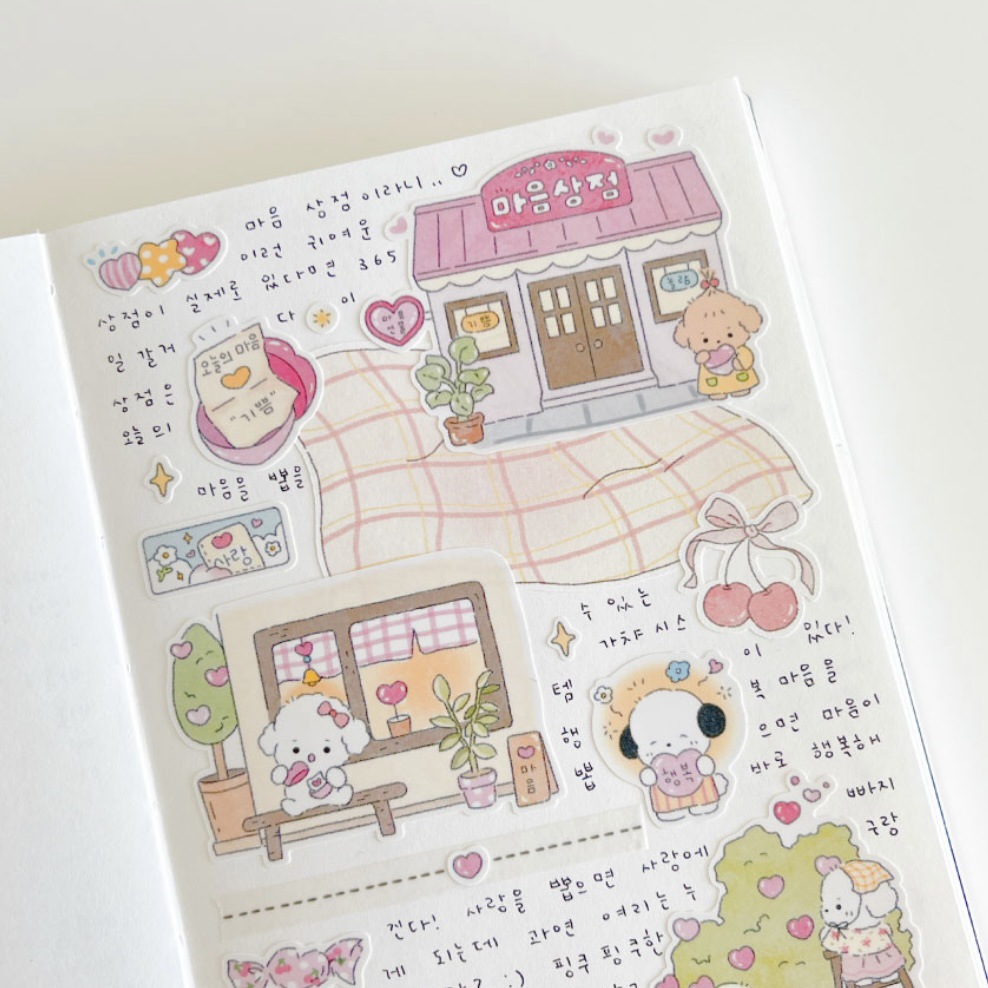 마음 상점 이라니.. ♡
이런 귀여운
상점이 실제로 있다면 365
일 갈거다
이
상점은
오늘의
마음을 뽑을
수 있는
가챠 시스템
이 있다!
행복 마음을
뽑으면 마음이
바로 행복해
빠지
구랑
진다! 사랑을 뽑으면 사랑에
게 되는데 과연 여리는 누
:) 핑쿠 핑쿠한
마음상점
기쁨
놀람
마음
오늘의 마음
"기쁨"
사랑
마음
행복